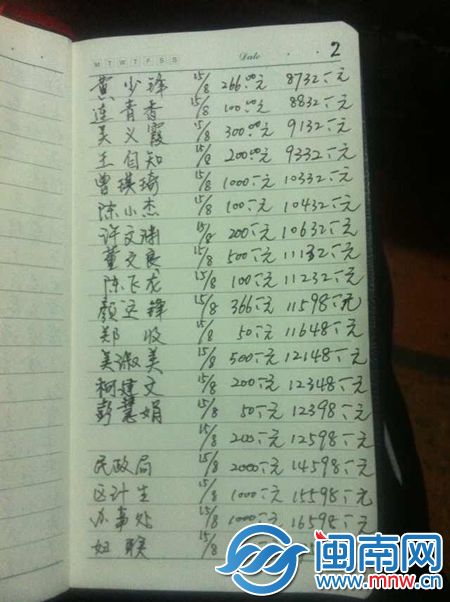 M T W T F S S Date 2
黄少锋 15/8 266.00元 8732.元
连青香 15/8 100.00元 8832.元
吴义霞 15/8 300.00元 9132.元
王自知 15/8 200.00元 9332.元
曾琪琦 15/8 1000.元 10332.元
陈小杰 15/8 100.元 10432.元
许文渊 15/8 200.元 10632.元
董文良 15/8 500.元 11132.元
陈飞龙 15/8 100.元 11232.元
颜锋 15/8 366.元 11598.元
郑 15/8 50.元 11648.元
吴淑美 15/8 500.元 12148.元
柯建文 15/8 200.元 12348.元
彭慧娟 15/8 50.元 12398.元
15/8 200.元 12598.元
民政局 15/8 2000.元 14598.元
区计生 15/8 1000.元 15598.元
办事处 15/8 1000.元 16598.元
妇联 15/8
闽南网
www.mnw.cn